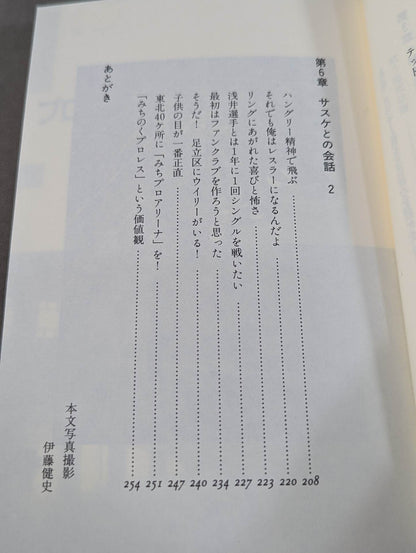 第6章 サスケとの会話 2
ハングリー精神で飛ぶ 208
それでも俺はレスラーになるんだよ 220
リングにあがれた喜びと怖さ 223
浅井選手とは1年に1回シングルを戦いたい 227
最初はファンクラブを作ろうと思った 234
そうだ! 足立区にウイリーがいる! 240
子供の目が一番正直 247
東北40ヶ所に「みちプロアリーナ」を! 251
「みちのくプロレス」という価値観 254
あとがき
本文写真撮影
伊藤健史